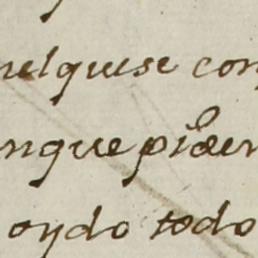 nelquise con
unque piden
oydo todo